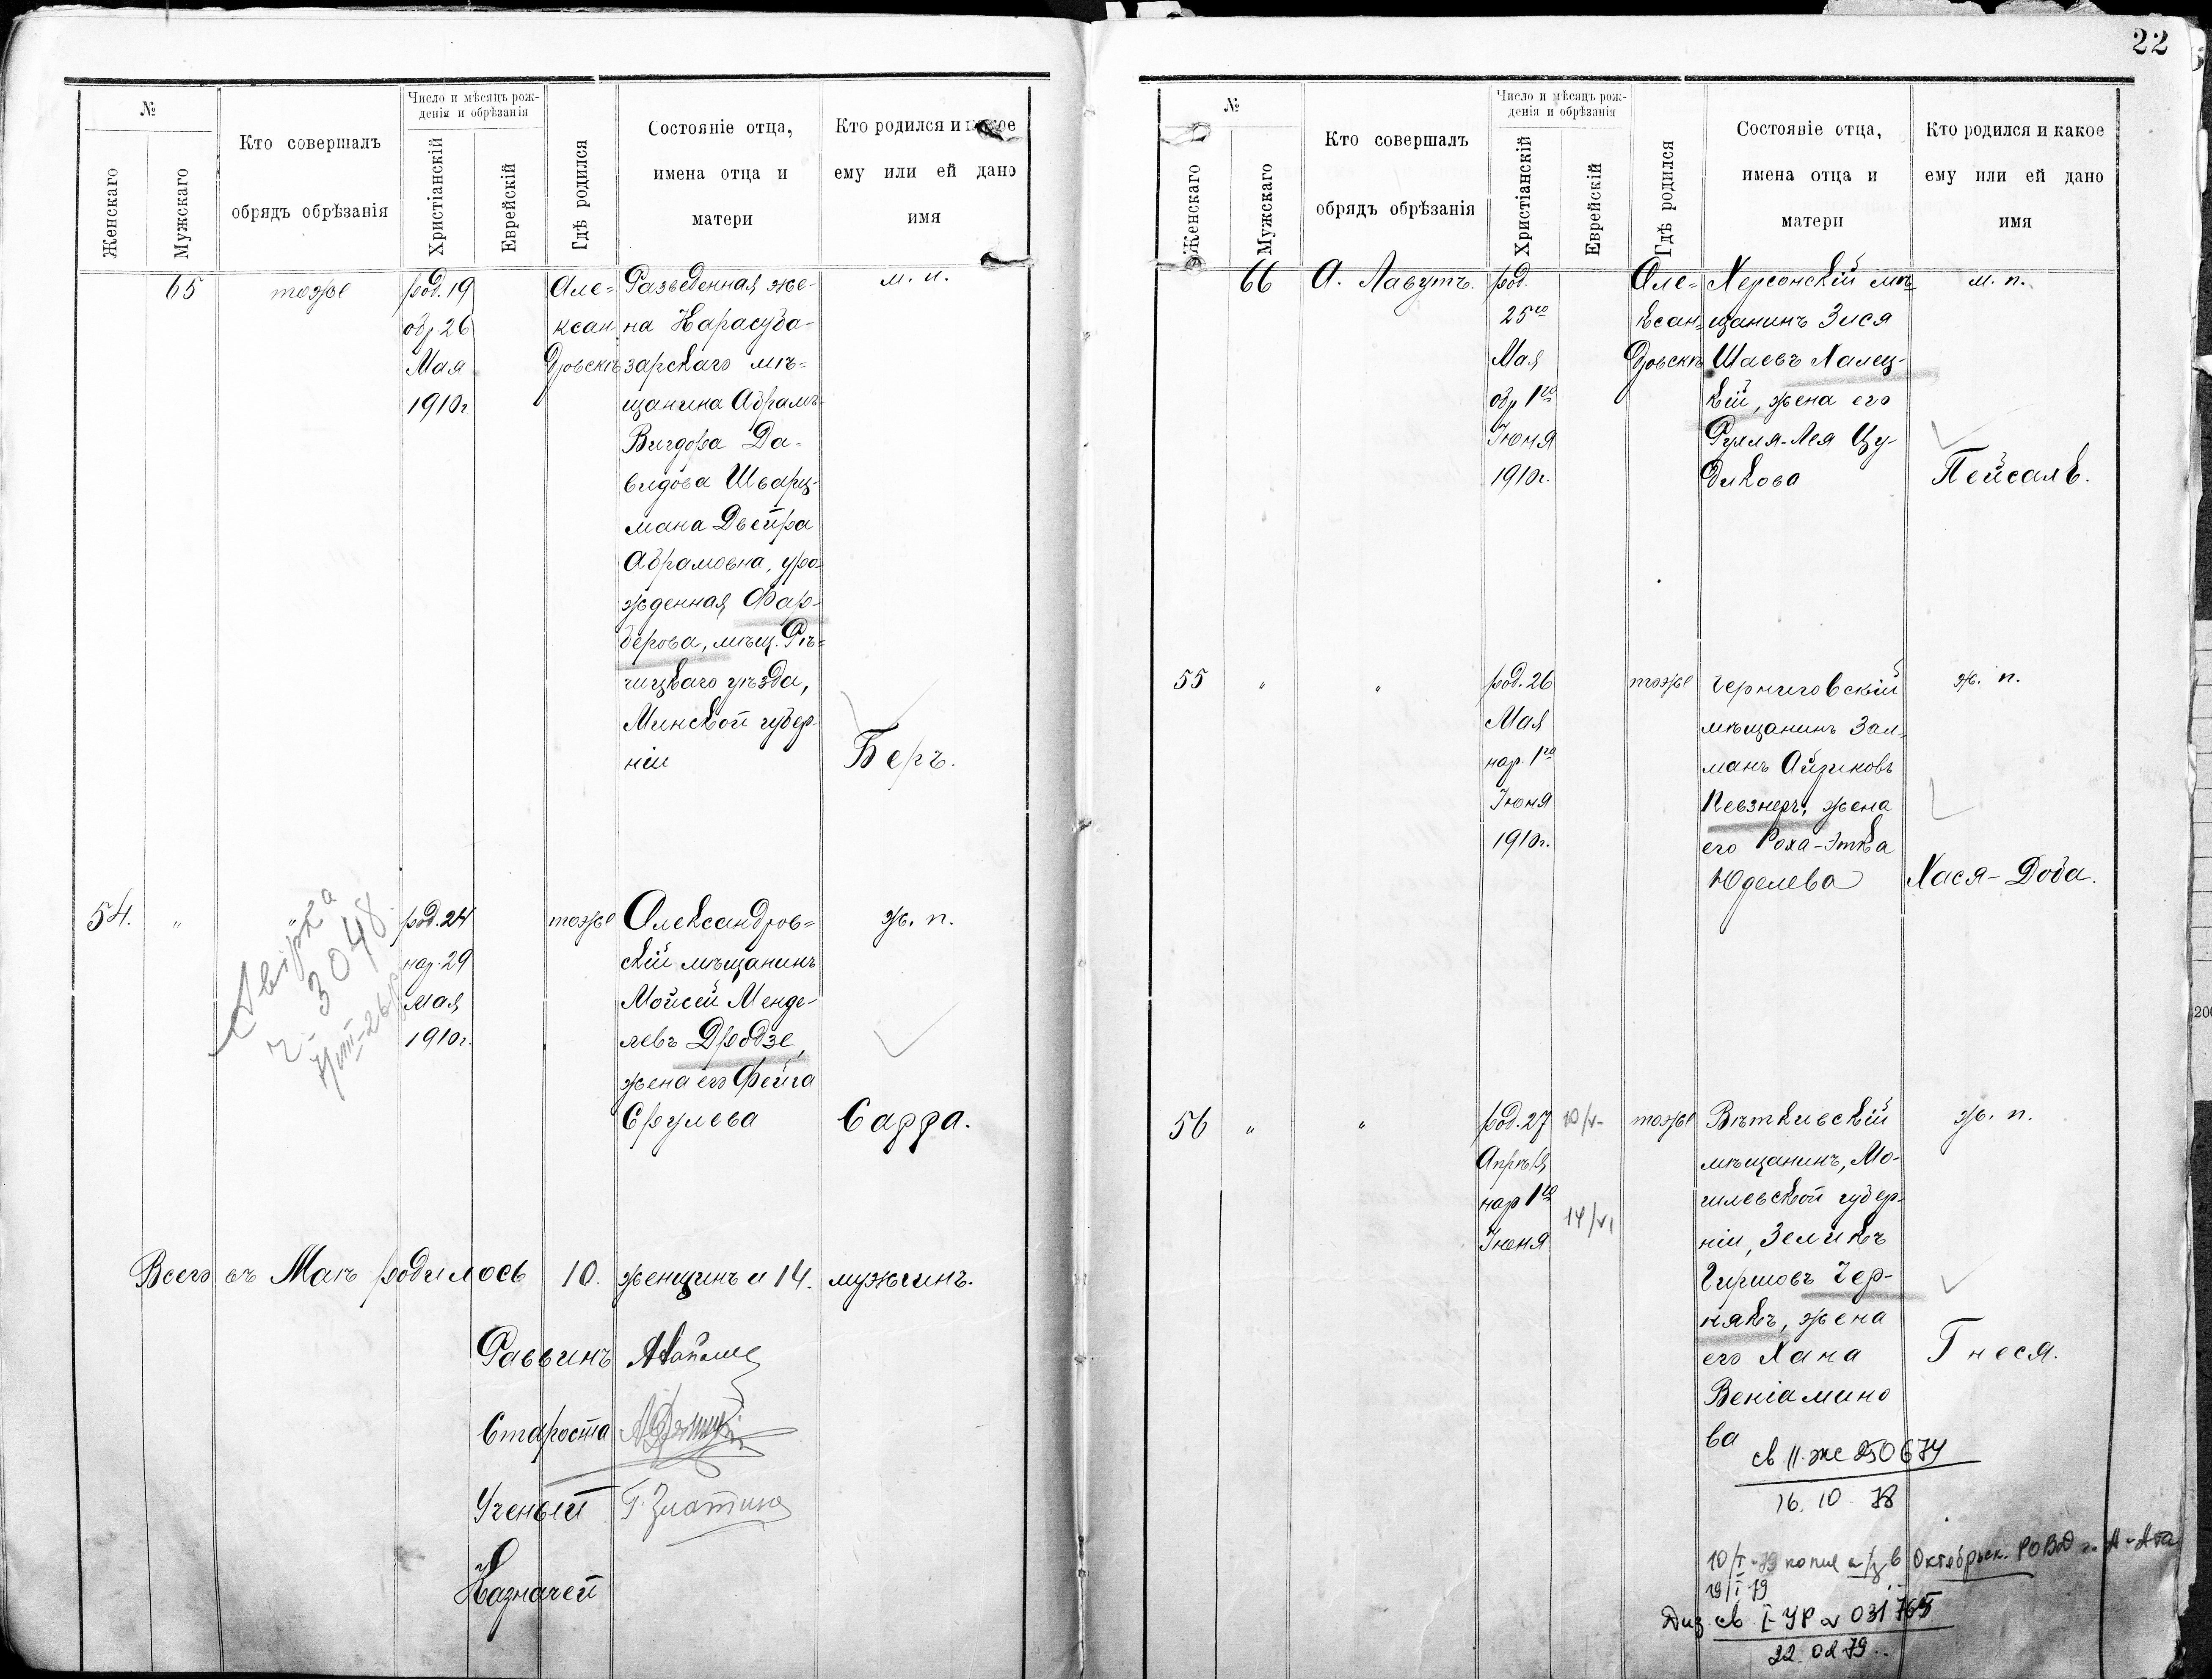 №
Женскаго
Мужскаго
Кто совершалъ
обрядъ обрѣзанія
Число и мѣсяцъ рож-
денія и обрѣзанія
Христіанскій
Еврейскій
Гдѣ родился
Состояніе отца,
имена отца и
матери
Кто родился и какое
ему или ей дано
имя
65
тоже
род. 19
обр 26
Мая
1910г.
Але=
ксан
дровскъ
Разведенная же-
на Карасуба-
зарскаго мѣ=
щанина Абрамъ-
Вигдора Да-
видова Шварц-
мана Двейра
Абрамовна, уро=
жденная Фар-
берова, мѣщ. Рѣ=
чицкаго уѣзда,
Минской губер-
ніи
м. п.
Беръ.
54.
"
"
род. 24
нар. 29
мая
1910г.
тоже
Александров=
скій мѣщанинъ
Мойсей Менде-
левъ Дродзе,
жена его Фейга
Срулева
ж. п.
Сарра.
3048
Всего въ Маѣ родилось 10. женщинъ и 14. мужчинъ.
Раввинъ
Староста
Ученый
Казначей
22
№
Женскаго
Мужскаго
Кто совершалъ
обрядъ обрѣзанія
Число и мѣсяцъ рож-
денія и обрѣзанія
Христіанскій
Еврейскій
Гдѣ родился
Состояніе отца,
имена отца и
матери
Кто родился и какое
ему или ей дано
имя
66
А. Лавутъ.
род.
25го
Мая
обр 1го
Іюня
1910г.
Але=
ксан=
дровскъ
Херсонскій мѣ-
щанинъ Зися
Шаевъ Халец-
кій, жена его
Рухля-Лея Цу-
дикова
м. п.
Пейсахъ.
55
"
"
род. 26
Мая
нар. 1го
Іюня
1910г.
тоже
Черниговскій
мѣщанинъ Зал-
манъ Айзиковъ
Певзнеръ, жена
его Роха-Этка
Юделева
ж. п.
Хася-Доба.
56
"
"
род. 27
Апрѣля
нар 1го
Іюня
10/V-
14/VI
тоже
Вѣтківскій
мѣщанинъ, Мо-
гилевской губер-
ніи, Зеликъ
Гиршовъ Чер-
някъ, жена
его Хана
Веніамино
ва
ж. п.
Гнеся.
св. II-же 250674
16. 10. 78
10/I-79 копия а/з в Октябрьск. РОВД г. А-Ата
19/I 79
св. I-УР № 031765
22.02.79.